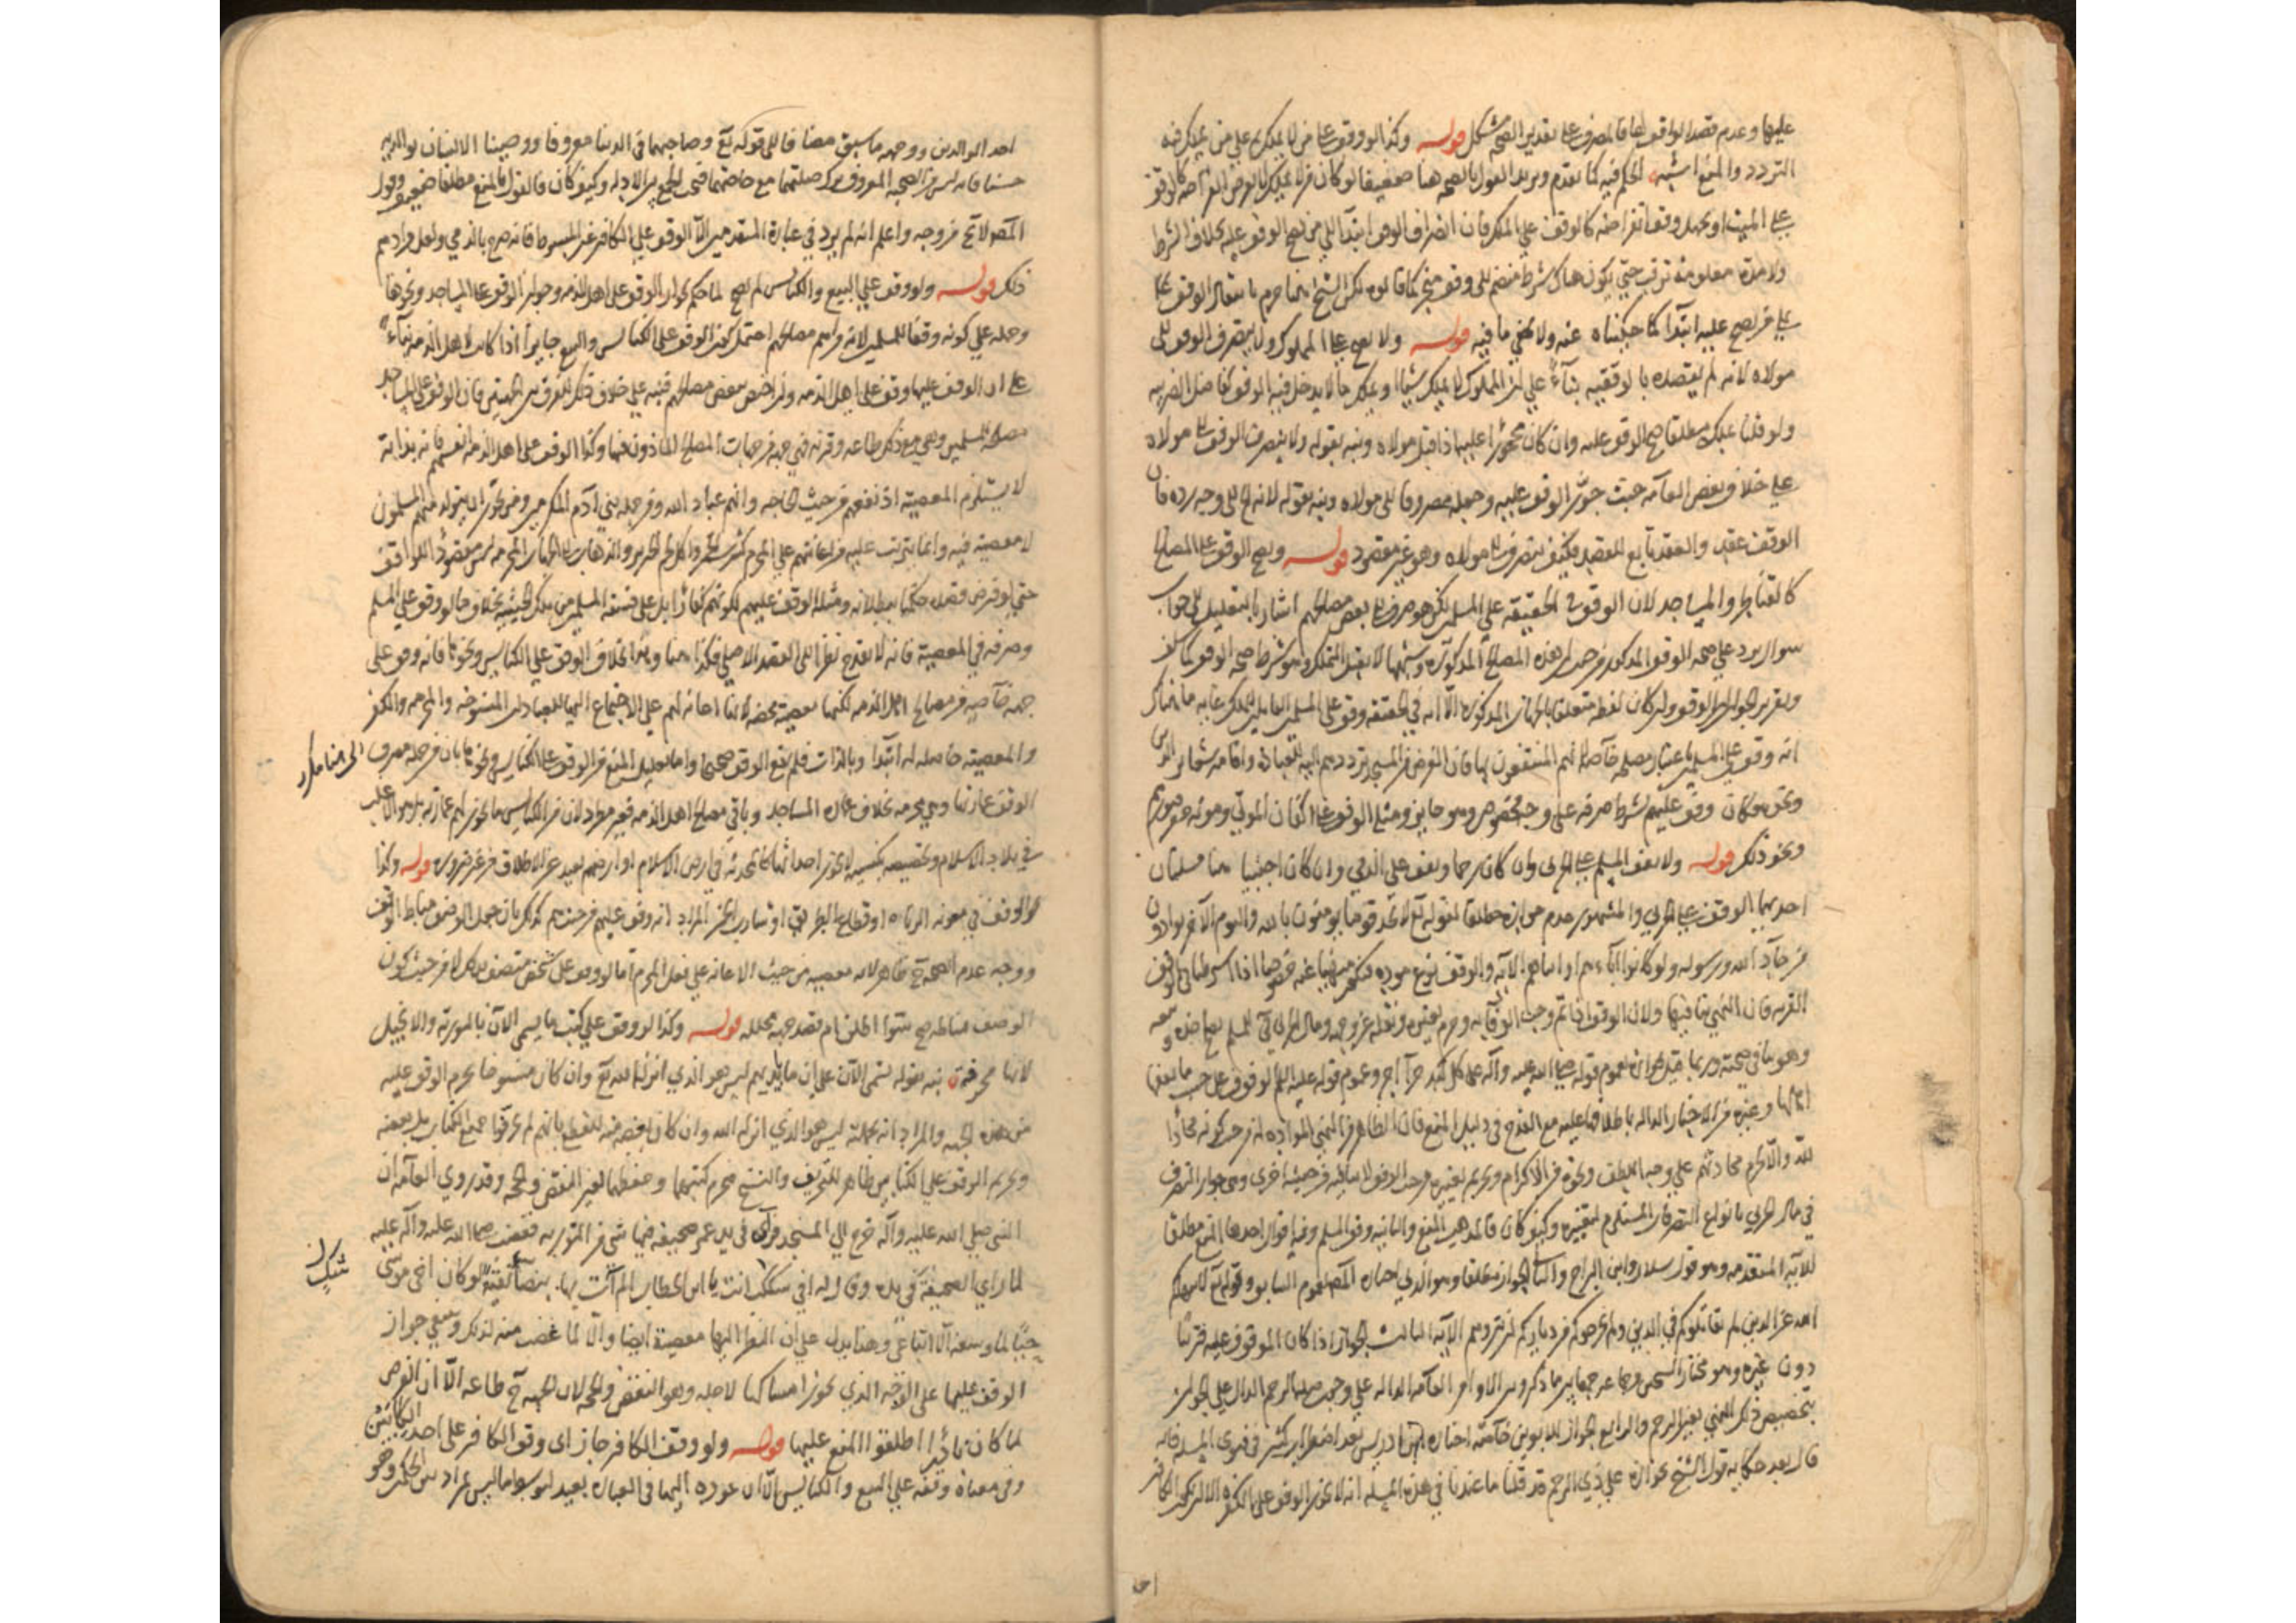 عليها وعدم قصد الواقف لها فالمصرف على تقدير الصحة مشكل قوله وكذا لو وقف على من لا يملك ثم على من يملك فيه
التردد والمنع اشبه الحكم فيه كما تقدم ويزيد القول بالصحة هنا ضعيفا لو كان من لا يملك لا يعرض انقراضه كالوقف
على الميت او يجهل وقت انقراضه كالوقف على الملك فان انصراف الوقف ابتداء الى من يصح الوقف عليه بخلاف الشرط
ولا مدة معلومة ترقب حتى يكون هناك شرط منضم الى وقف منجز كما قالوه لكن الشيخ انما جزم بانتقال الوقف
على من يصح عليه ابتداء كما حكيناه عنه ولا يخفى ما فيه قوله ولا يصح على المملوك ولا ينصرف الوقف الى
مولاه لانه لم يقصده بالوقفية بناء على ان المملوك لا يملك شيئا او يملك ما لا يدخل فيه الوقف كفاضل الضريبة
ولو قلنا يملك مطلقا صح الوقف عليه وان كان محجورا عليه اذا قبل مولاه ونبه بقوله ولا ينصرف الوقف الى مولاه
على خلاف بعض العامة حيث جوز الوقف عليه وجعله مصروفا الى مولاه ونبه بقوله لانه الخ الى وجه رده فان
الوقف عقد والعقد تابع للقصد فكيف ينصرف الى مولاه وهو غير مقصود قوله ويصح الوقف على المصالح
كالقناطر والمساجد لان الوقف في الحقيقة على المسلمين لكن هو صرف الى بعض مصالحهم اشار بالتعليل الى جواب
سوال يرد على صحة الوقف المذكور من حيث ان هذه المصالح المذكورة وشبهها لا يقبل التملك وهو شرط صحة الوقف كما سلف
وتقرير الجواب ان الوقف وان كان لفظه متعلقا بالجهات المذكورة الا انه في الحقيقة وقف على المسلمين القابلين للتملك غايه ما هناك
انه وقف على المسلمين باعتبار مصلحة خاصة لانهم المنتفعون بها فان الغرض من المسجد ترددهم اليه للعبادة واقامة شعائر الدين
ونحوه فكان وقف عليهم بشرط صرفه على وجه مخصوص وهو جايز ومثله الوقف على اكفان الموتى ومونة حفر قبورهم
ونحو ذلك قوله ولا يقف المسلم على الحربي وان كان رحما ويقف على الذمي وان كان اجنبيا هنا مسئلتان
احديهما الوقف على الحربي والمشهور عدم جوازه مطلقا لقوله تع لا تجد قوما يؤمنون بالله واليوم الآخر يوادون
من حاد الله ورسوله ولو كانوا آباءهم او ابناءهم الآية والوقف نوع موده فيكون منهيا عنه خصوصا اذا اشترطنا في الوقف
القربة فان النهي ينافيها ولان الوقف اذا تم وجب الوفاء به وحرم تغييره ونقله عن وجهه ومال الحربي فئ للمسلم يصح اخذه وبيعه
وهو ينافي صحته وربما قيل بجوازه لعموم قوله صلى الله عليه وآله على كل كبد حرآء اجر وعموم قوله عليه السلم الوقوف على حسب ما يقفها
اهلها وغيره من الاخبار الدالة باطلاقها عليه مع القدح في دليل المنع فان الظاهر من النهي عن المواده له من حيث كونه محادا
لله والا لحرم محادثتهم على وجه اللطف ونحوه من الاكرام وتحريم تغييره من حيث الوقف لا ينافيه من حيثية اخرى وهي جواز التصرف
في مال الحربي بانواع التصرفات المستلزم لتغييره وكيف كان فالمذهب المنع والثانية وقف المسلم وفيه اقوال احدها المنع مطلقا
للآية المتقدمة وهو قول سلار وابن البراج والثاني الجواز مطلقا وهو الذي اختاره المصـ لعموم السابق وقوله تع لا ينهاكم
الله عن الذين لم يقاتلوكم في الدين ولم يخرجوكم من دياركم ان تبروهم الآية الثالث الجواز اذا كان الموقوف عليه قريبا
دون غيره وهو مختار الشيخين وجماعة جمعا بين ما ذكر وبين الاوامر العامة الدالة على وجوب صلة الرحم الدال على الجواز
بتخصيص ذلك النهي بغير الرحم والرابع الجواز للابوين خاصة اختاره ابن ادريس بعد اضطراب كثير في فتوى المسئلة فانه
قال بعد حكاية قول الشيخ بجوازه على ذي الرحم قد قلنا ما عندنا في هذه المسئلة انه لا يجوز الوقف على الكفرة الا ان يكون الكافر
احد
احد الوالدين ووجهه ما سبق مضافا الى قوله تع وصاحبهما في الدنيا معروفا ووصينا الانسان بوالديه
حسنا فانه ليس من الصحبة المعروف ترك صلتهما مع حاجتهما فتخص الجمع بين الادلة وكيف كان فالقول بالمنع مطلقا ضعيف وقول
المصـ لا يخ من وجه واعلم انه لم يرد في عبارة المتقدمين الا الوقف على الكافر غير المبسوط فانه صرح بالذمي ولعل مرادهم
ذلك قوله ولو وقف على البيع والكنايس لم يصح لما حكم بجواز الوقف على اهل الذمة وجواز الوقف على المساجد ونحوها
وحمله على كونه وقفا للمسلمين لانه من اهم مصالحهم احتمل كون الوقف على الكنايس والبيع جايزا اذا كانت لاهل الذمة بناء
على ان الوقف عليها وقف على اهل الذمة وان اختص ببعض مصالحهم فنبه على خلاف ذلك للفرق بين الجهتين فان الوقف على المساجد
مصلحة للمسلمين وهي مع ذلك طاعة وقربة فهي جهة من جهات المصالح الماذون فيها وكذا الوقف على اهل الذمة انفسهم فانه بذاته
لا يستلزم المعصية اذ نفعهم من حيث الحاجة وانهم عباد الله ومن جملة بني آدم المكرمين ومن تجويز ان يتولد منهم المسلمون
لا معصية فيه وانما يترتب عليه من اعانتهم على المحرم كشرب الخمر واكل لحم الخنزير والذهاب الى الجهات المحرمة ليس مقصودا للواقف
حتى لو فرض قصده حكمنا ببطلانه ومثله الوقف عليهم لكونهم كفارا بل على فسقة المسلمين من تلك الحيثية بخلاف ما لو وقف على المسلم
وصرفه في المعصية فانه لا يقدح نظرا الى القصد الاصلي فكذا هنا وهذا بخلاف الوقف على الكنايس ونحوها فانه وقف على
جهة خاصة من مصالح اهل الذمة لكنها معصية محضة لانها اعانة لهم على الاجتماع اليها للعبادات المنسوخة والمحرمة والكفر
والمعصية حاصلة له ابتداء وبالذات فلم يقع الوقف صحيحا واما تعليل المنع من الوقف على الكنايس ونحوها بان من جملة مصرف
الوقف عمارتها وهي محرمة بخلاف عمارة المساجد وباقي مصالح اهل الذمة فغير مطرد لان من الكنايس ما يجوز لهم عمارته بل هو الاغلب
في بلاد الاسلام وتخصيصه بكنيسة لا يجوز احداثها كالمحدثة في ارض الاسلام او ارضهم بعيد عن الاطلاق من غير ضرورة قوله وكذا
لو وقف في معونة الزناة او قطاع الطريق او شارب الخمر المراد انه وقف عليهم من حيث هم كذلك بان جعل الوصف مناط الوقف
ووجه عدم الصحة ح ظاهر لانه معصية من حيث الاعانة على فعل المحرم اما لو وقف على شخص متصف بذلك لا من حيث كون
الوصف مناطه صح سواء اطلق ام قصد جهة محللة قوله وكذا لو وقف على كتب ما يسمى الآن بالتورية والانجيل
لانها محرفة نبه بقوله يسمى الآن على ان ما بايديهم ليس هو الذي انزل الله تع وان كان منسوخا يحرم الوقف عليه
من هذه الجهة والمراد انه بجملته ليس هو الذي انزله الله وان كان بعضه منه للقطع بانهم لم يحرفوا جميع الكتاب بل بعضه
وتحريم الوقف على الكتابين ظاهر للتحريف والنسخ فيحرم كتبهما وحفظهما لغير النقض والحجة وقد روى العامة ان
النبي صلى الله عليه وآله خرج الى المسجد فرآى في يد عمر صحيفة فيها شئ من التورية فغضب صلى الله عليه وآله عليه
لما راى الصحيفة في يده وقال له افي شك انت يا ابن الخطاب الم آت بها بيضاء نقية لو كان اخي موسى
حيا لما وسعه الا اتباعي وهذا يدل على ان النظر اليها معصية ايضا والا لما غضب منه لذلك وينبغي جواز
الوقف عليها على الوجه الذي يجوز امساكها لاجله وهو النقض والحجة لان الجهة ح طاعة الا ان الغرض
لما كان نادرا اطلقوا المنع عليها قوله ولو وقف الكافر جاز اى وقف الكافر على احد الكتابين
وفي معناه وقفه على البيع والكنايس الا ان عوده اليها في العبارة بعيد لتوسط ما ليس بمراد من الحكم وهو